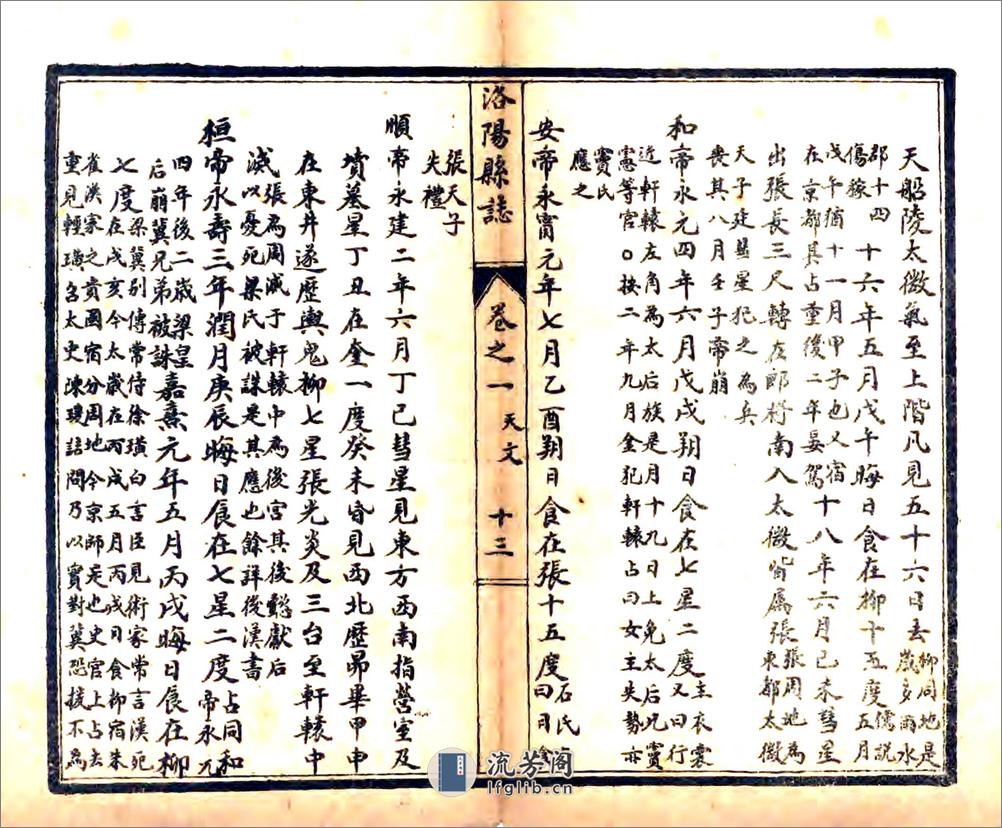 天船陵太微氣至上階凡見五十六日去柳周地是歲多雨水
郡十四傷稼十六年五月戊午晦日食在柳十五度儒說五月
戊午猶十一月甲子也又宿在京都其占重後二年晏駕十八年六月已未彗星
出張長三尺轉在郎將南入太微皆屬張張周地為東都太微
天子廷彗星犯之為兵喪其八月壬子帝崩
和帝永元四年六月戊戌朔日食在七星二度主衣裳又曰行
近軒轅左角為太后族是月十九日上免太后兄竇憲等官○按二年九月金犯軒轅占曰女主失勢亦
竇氏應之
安帝永甯元年七月乙酉朔日食在張十五度石氏占曰日食
洛陽縣誌 卷之一 天文 十三
張天子失禮
順帝永建二年六月丁巳彗星見東方西南指營室及
墳墓星丁丑在奎一度癸未昏見西北歷昴畢甲申
在東井遂歷輿鬼柳七星張光炎及三台至軒轅中
滅張為周滅于軒轅中為後宮其後懿獻后以憂死梁氏被誅是其應也餘詳後漢書
桓帝永壽三年潤月庚辰晦日食在七星二度占同和帝永元
四年後二歲梁皇后崩冀兄弟被誅嘉熹元年五月丙戌晦日食在柳
七度梁冀別傳常侍徐璜白言臣見術家常言漢死在戌亥今太歲在丙戌五月丙戌日食柳宿朱
雀漢家之貴國宿分周地今京師是也史官上占去重見輕璜召太史陳瓊詰問乃以實對冀恐援不為
流芳阁
lfglib.cn